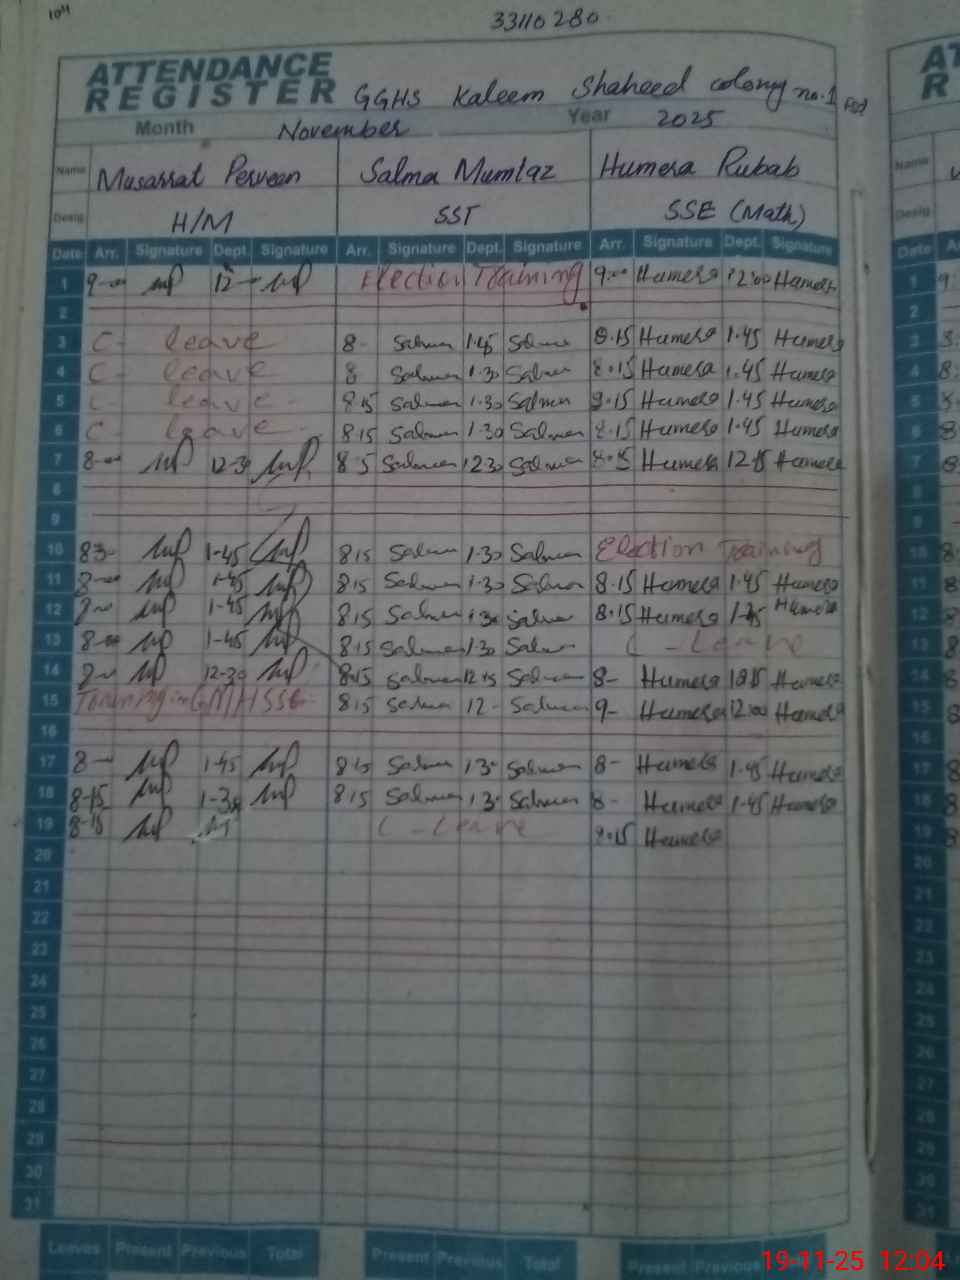 104
33110280
ATTENDANCE
REGISTER GGHS Kaleem Shaheed colony no.1 Fsd
Month November Year 2025
Name Musarrat Perveen Salma Mumtaz Humera Rubab
Desig H/M SST SSE (Math)
Date Arr. Signature Dept. Signature Arr. Signature Dept. Signature Arr. Signature Dept. Signature
1 9-00 MP 12- MP Election Training 9:00 Humera 12:00 Humera
2
3 C- leave 8- Salma 1.45 Salma 8.15 Humera 1.45 Humera
4 C- leave 8 Salma 1.30 Salma 8.15 Humera 1.45 Humera
5 C- leave 8.15 Salma 1.30 Salma 8.15 Humera 1.45 Humera
6 C leave 8.15 Salma 1.30 Salma 8.15 Humera 1.45 Humera
7 8-00 MP 12-30 MP 8.15 Salma 12.30 Salma 8.15 Humera 12.15 Humera
8
9
10 830 MP 1-45 MP 8.15 Salma 1.30 Salma Election Training
11 8-00 MP 1-45 MP 8.15 Salma 1.30 Salma 8.15 Humera 1.45 Humera
12 MP 1-45 MP 8.15 Salma 1.30 Salma 8.15 Humera Humera
13 8-00 MP 1-45 MP 8.15 Salma 1.30 Salma C - Leave
14 MP 12-30 MP 8.15 Salma 12.15 Salma 8- Humera Humera
15 Training in GMHSSC 8.15 Salma 12- Salma 9- Humera 12:00 Humera
16
17 8- MP 1-45 MP 8.15 Salma 1.3 Salma 8- Humera 1.45 Humera
18 8-15 MP 1-30 MP 8.15 Salma 1.3 Salma 8- Humera 1.45 Humera
19 8-15 MP C - Leave 8.15 Humera
20
21
22
23
24
25
26
27
28
29
30
31
Leaves Present Previous Total Present Previous Total Present Previous
19-11-25 12:04